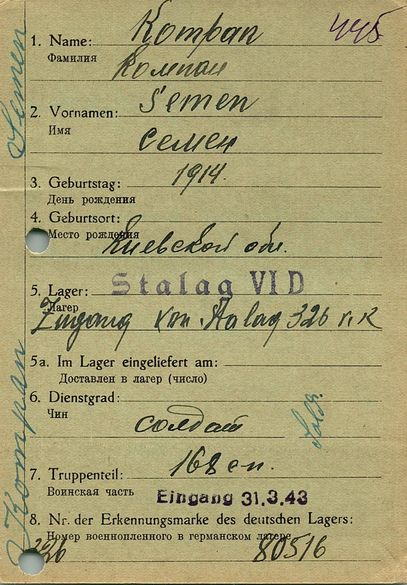 445
1. Name: Kompan
Фамилия Компан
2. Vornamen: Semen
Имя Семен
3. Geburtstag: 1914.
День рождения
4. Geburtsort:
Место рождения Киевской обл.
5. Lager: Stalag VI D
Лагер
Zugang von Stalag 326 VI K
5a. Im Lager eingeliefert am:
Доставлен в лагер (число)
6. Dienstgrad:
Чин солдат
Sold.
7. Truppenteil: 168 сп.
Воинская часть Eingang 31.3.43
8. Nr. der Erkennungsmarke des deutschen Lagers:
Номер военнопленного в германском лагере
80516
Kompan Semen